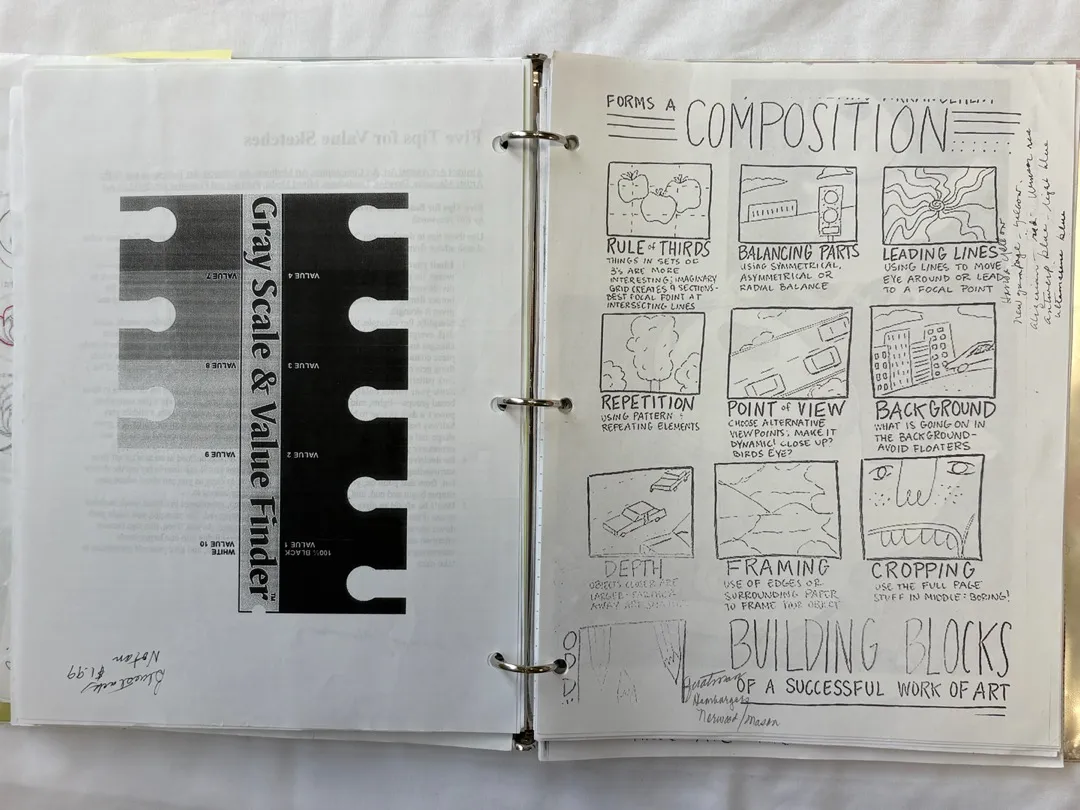 Five Tips for Value Sketches
Gray Scale & Value Finder™
VALUE 7
VALUE 8
VALUE 9
WHITE
VALUE 10
VALUE 4
VALUE 3
VALUE 2
100% BLACK
VALUE 1
Notan
$1.99
FORMS A
COMPOSITION
RULE of THIRDS
THINGS IN SETS OF
3's ARE MORE
INTERESTING; IMAGINARY
GRID CREATES 9 SECTIONS-
BEST FOCAL POINT AT
INTERSECTING LINES
BALANCING PARTS
USING SYMMETRICAL,
ASYMMETRICAL OR
RADIAL BALANCE
LEADING LINES
USING LINES TO MOVE
EYE AROUND OR LEADS
TO A FOCAL POINT
REPETITION
USING PATTERN +
REPEATING ELEMENTS
POINT of VIEW
CHOOSE ALTERNATIVE
VIEWPOINTS; MAKE IT
DYNAMIC! CLOSE UP?
BIRDS EYE?
BACKGROUND
WHAT IS GOING ON IN
THE BACKGROUND-
AVOID FLOATERS
DEPTH
OBJECTS CLOSER ARE
LARGER-FARTHER
AWAY ARE
FRAMING
USE OF EDGES OR
SURROUNDING PAPER
TO FRAME YOUR OBJECT
CROPPING
USE THE FULL PAGE
STUFF IN MIDDLE = BORING!
BUILDING BLOCKS
OF A SUCCESSFUL WORK OF ART
new gamboge - yellow
light blue
ultramarine blue